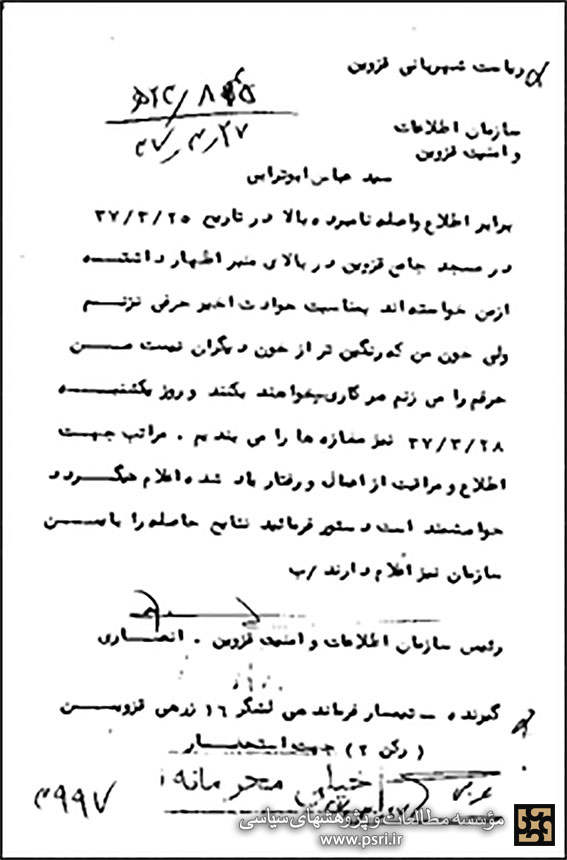 ریاست شهربانی قزوین
سازمان اطلاعات
و امنیت قزوین
۲۷/۳/۲۷
سید عباس ابوترابی
برابر اطلاع واصله نامبرده بالا در تاریخ ۳۷/۳/۲۵
در مسجد جامع قزوین در بالای منبر اظهار داشته
ازمن خواسته اند بمناسبت حوادث اخیر حرفی نزنم
ولی خون من که رنگین تر از خون دیگران نیست من
حرفم را می زنم هر کاری میخواهند بکنند و روز یکشنبه
۳۷/۳/۲۸ نیز مغازه ها را می بندیم . مراتب جهت
اطلاع و مراقبت از اعمال و رفتار یاد شده اعلام میگردد
خواهشمند است دستور فرمائید نتایج حاصله را باین
سازمان نیز اعلام دارند /ب
رئیس سازمان اطلاعات و امنیت قزوین . انصاری
گیرنده – تیمسار فرماندهی لشگر ۱۶ زرهی قزوین
( رکن ۲ ) جهت استحضار
خیلی محرمانه
۳۹۹۷
مؤسسه مطالعات و پژوهشهای سیاسی
www.psri.ir